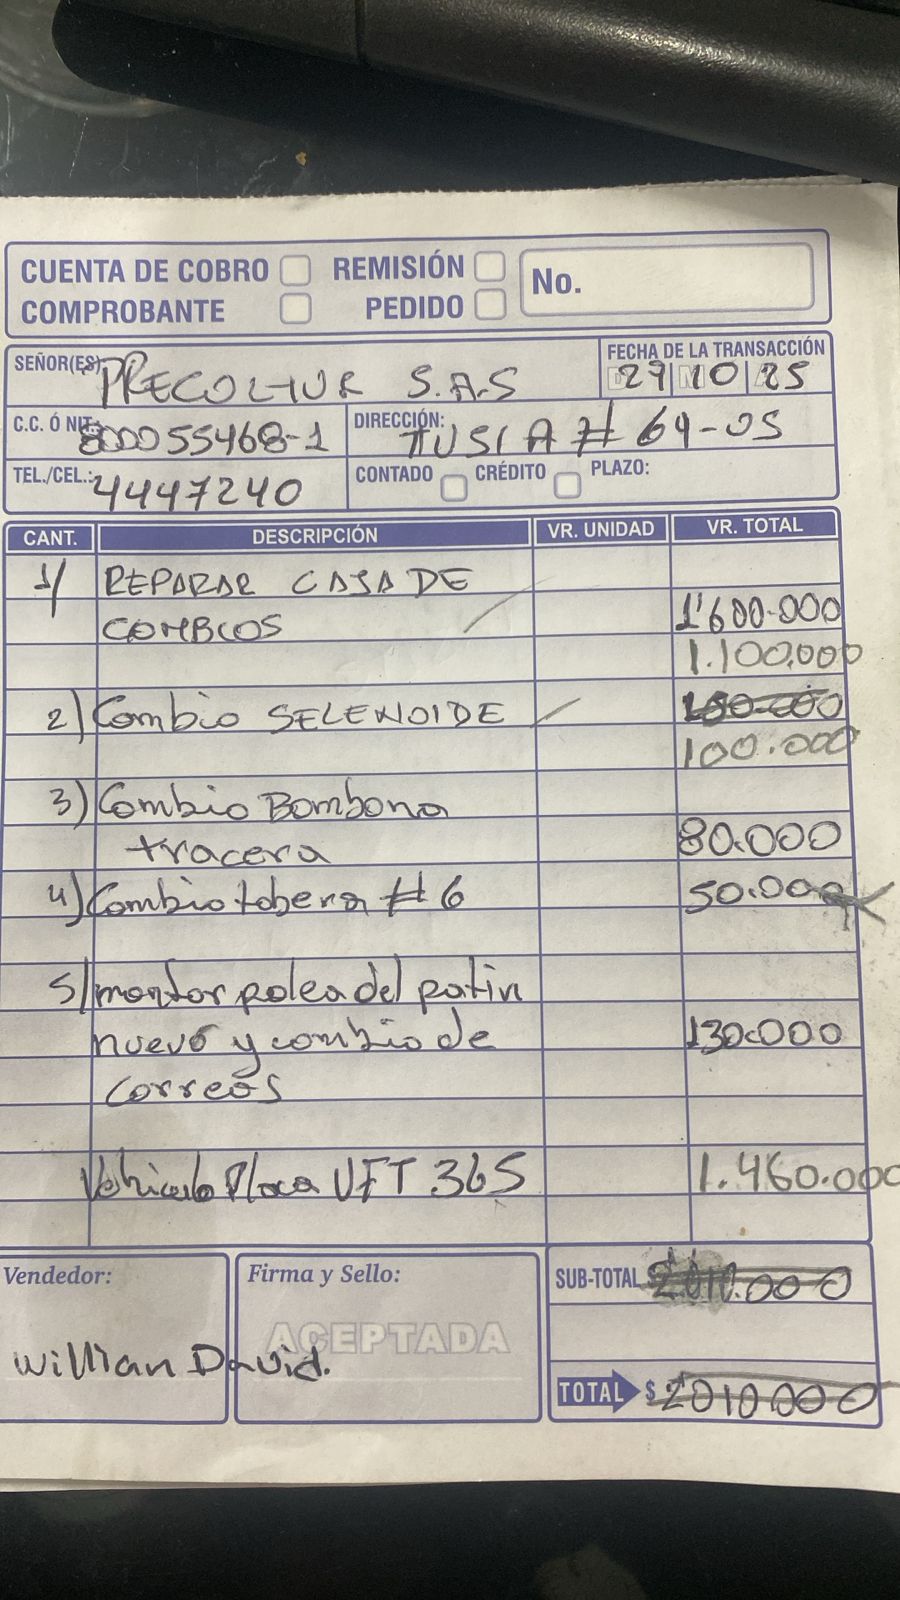 CUENTA DE COBRO REMISIÓN No.
COMPROBANTE PEDIDO
SEÑOR(ES): PRECOLTUR S.A.S
FECHA DE LA TRANSACCIÓN
27 10 25
C.C. Ó NIT.: 800055468-1 DIRECCIÓN: # 64-05
TEL./CEL.: 4447240 CONTADO CRÉDITO PLAZO:
CANT. DESCRIPCIÓN VR. UNIDAD VR. TOTAL
1/ REPARAR CAJA DE
COMBIOS 1'600.000
1.100.000
2) Combio SELENOIDE 180.000
100.000
3) Combio Bombona
tracera 80.000
4) Combio tobera # 6 50.000
5/ montar polea del patin
nuevo y combio de 130.000
correas
Vehiculo Placa UFT 365 1.460.000
Vendedor: Firma y Sello: SUB-TOTAL $ 2'010.000
ACEPTADA
Willian David.
TOTAL $ 2'010.000